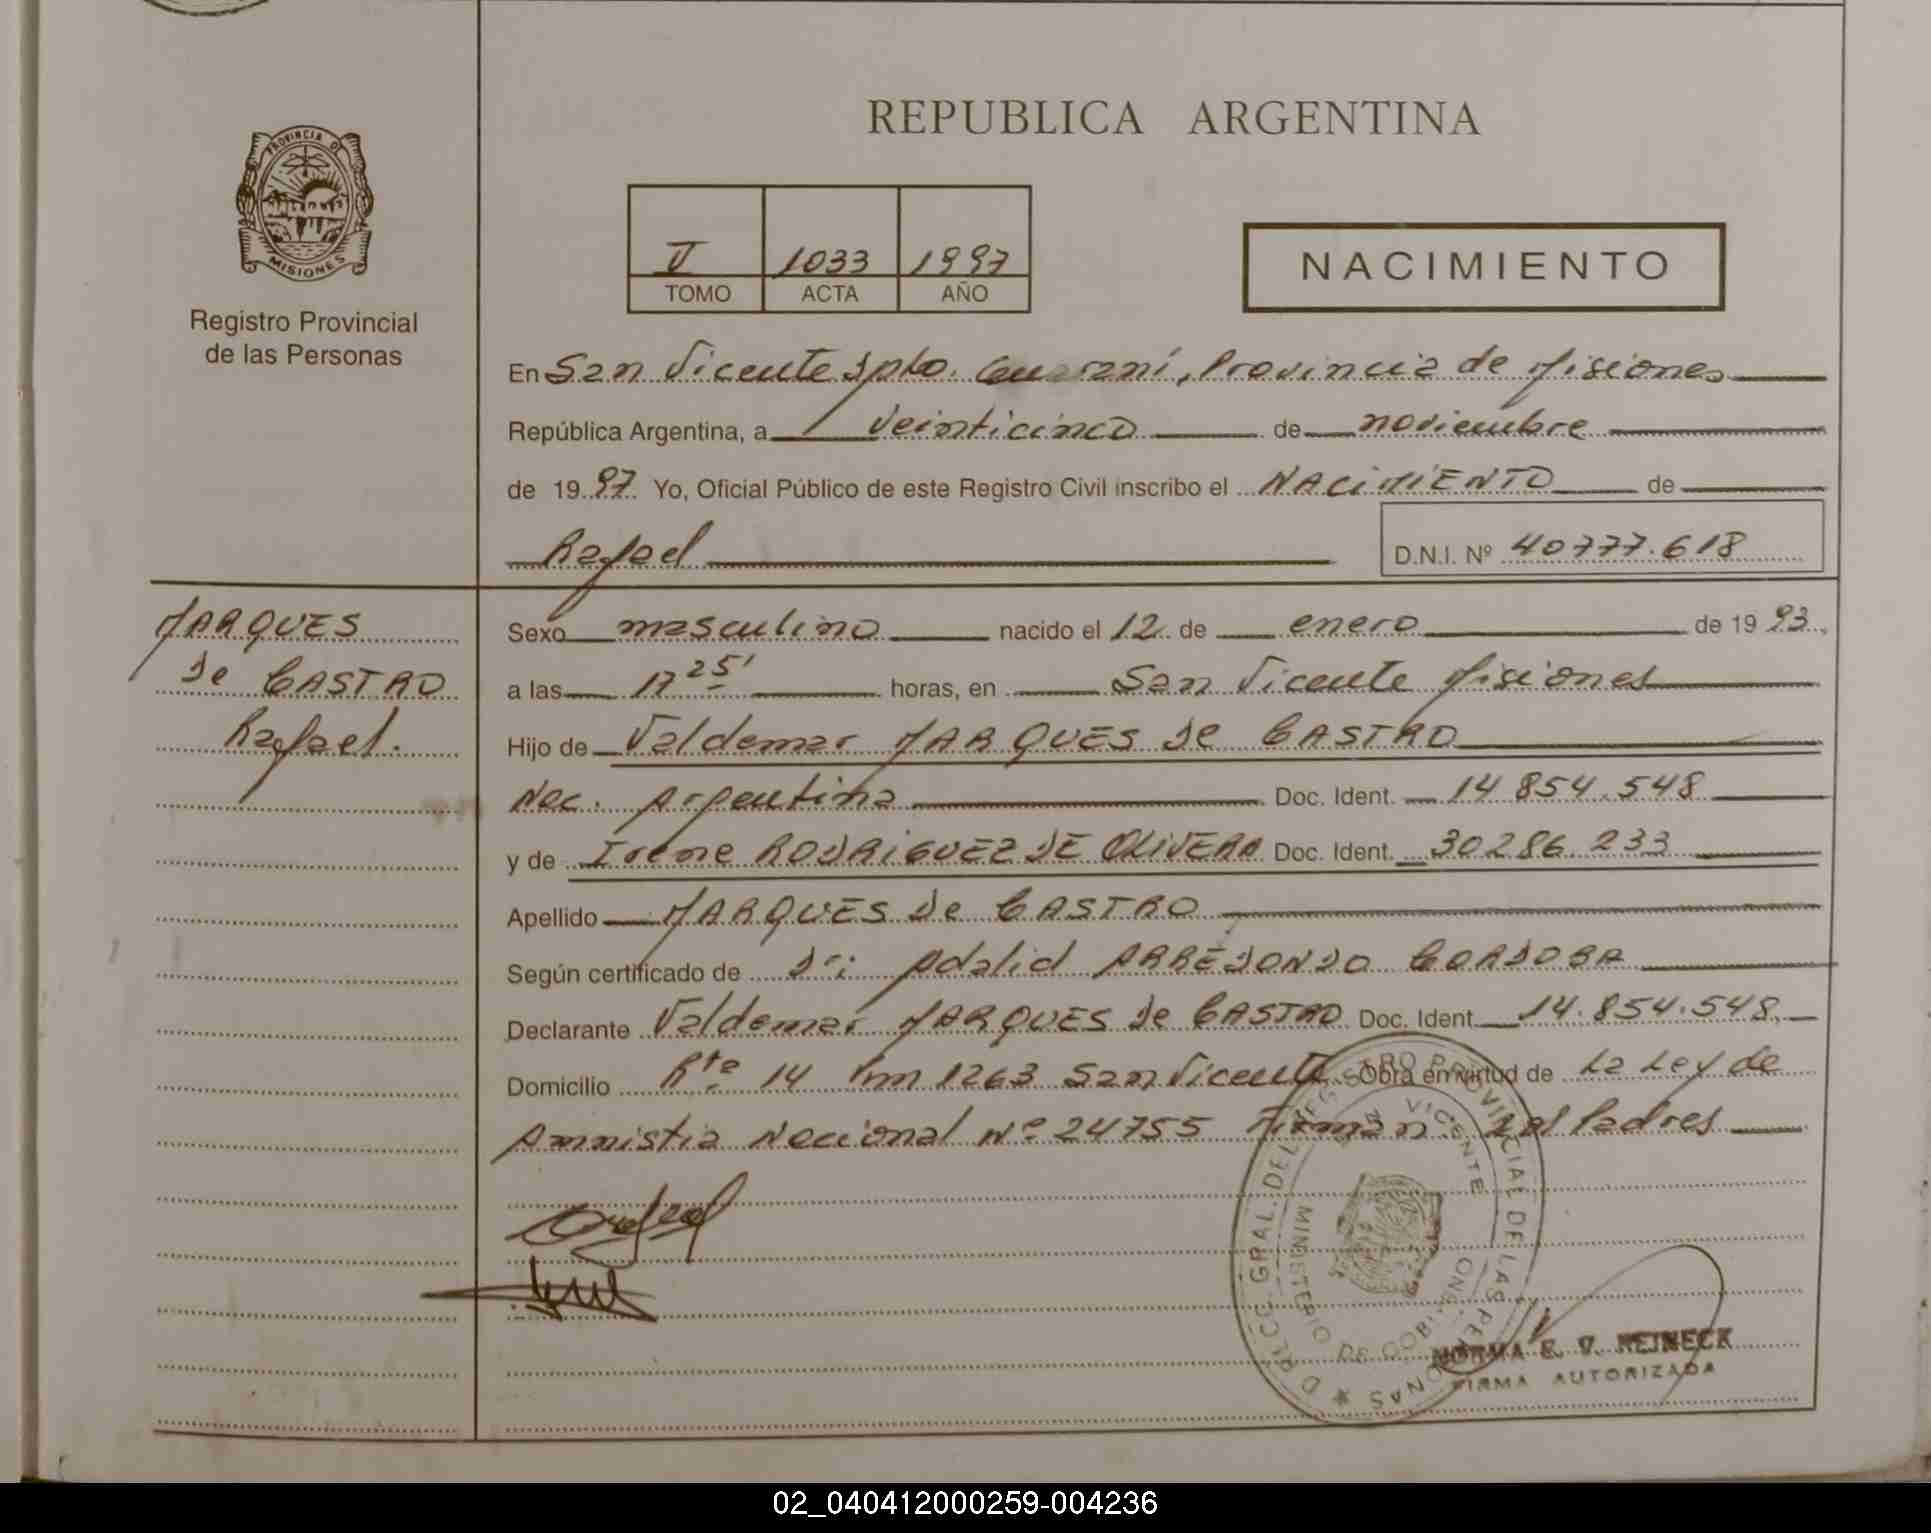 REPUBLICA ARGENTINA
PROVINCIA DE
MISIONES
Registro Provincial
de las Personas
V 1033 1997
TOMO ACTA AÑO
NACIMIENTO
En San Vicente Dpto. Guaraní, Provincia de Misiones
República Argentina, a veinticinco de noviembre
de 1997 Yo, Oficial Público de este Registro Civil inscribo el NACIMIENTO de
Rafael D.N.I. Nº 40777.618
MARQUES
De CASTRO
Rafael.
Sexo masculino nacido el 12 de enero de 1993
a las 17 25' horas, en San Vicente Misiones
Hijo de Valdemar MARQUES De CASTRO
Nac. Argentina Doc. Ident. 14 854.548
y de Irene RODRIGUEZ DE OLIVERA Doc. Ident. 30286.233
Apellido MARQUES De CASTRO
Según certificado de Dr: Adalid ARREDONDO CORDOBA
Declarante Valdemar MARQUES De CASTRO Doc. Ident 14.854.548
Domicilio Rta 14 Km 1263 San Vicente Obra en virtud de La Ley de
Amnistia Nacional Nº 24755 Firman Los Padres
NORMA E. V. REINECK
FIRMA AUTORIZADA
02_040412000259-004236